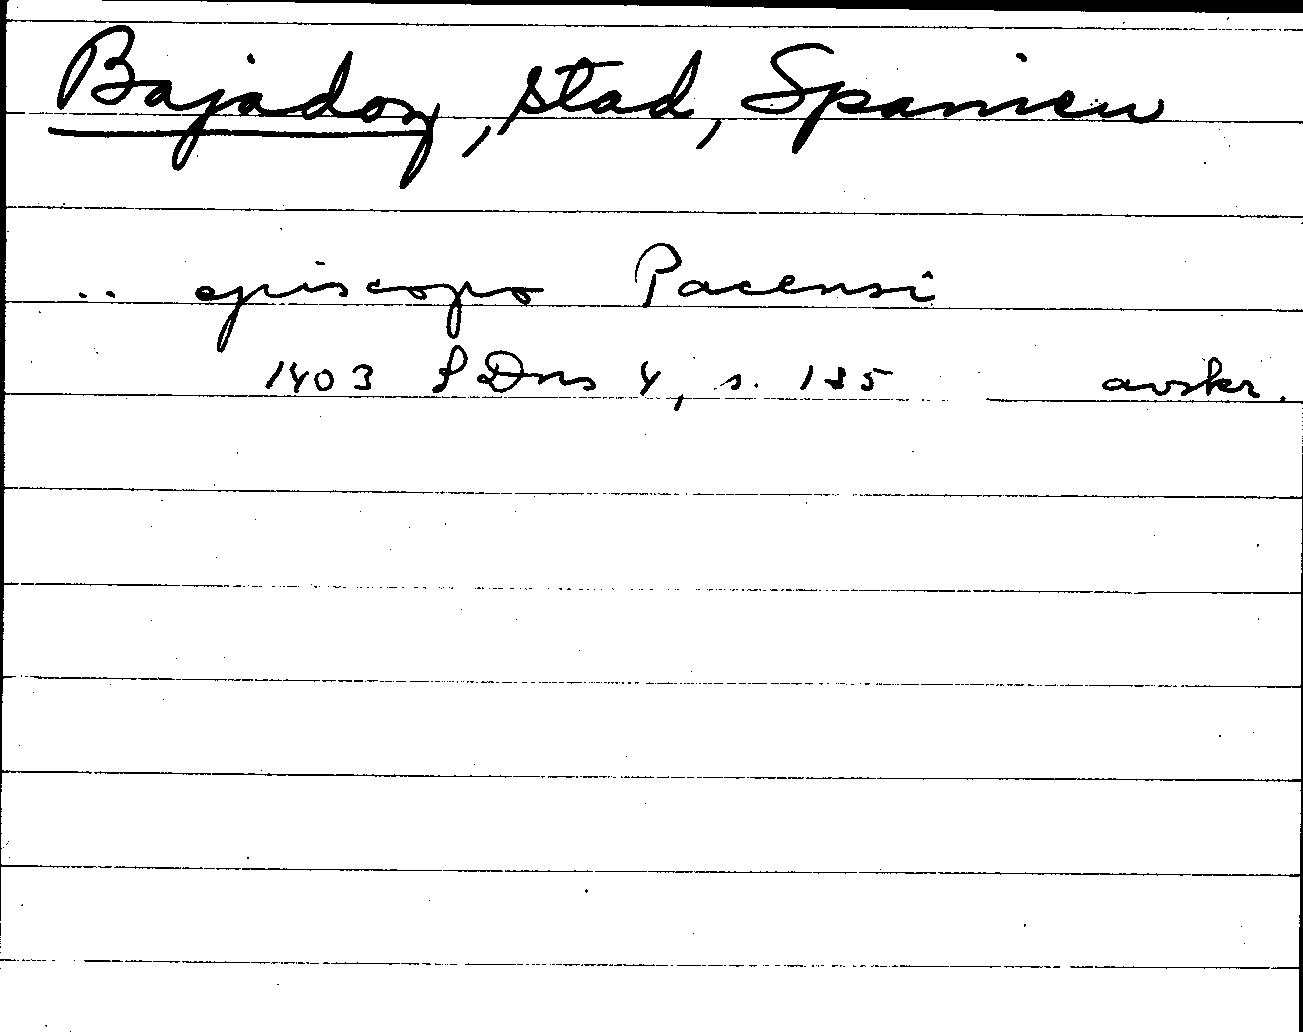 Bajadoz, stad, Spanien
.. episcopo Pacensi
1403 SDns 4, s. 135 avskr.